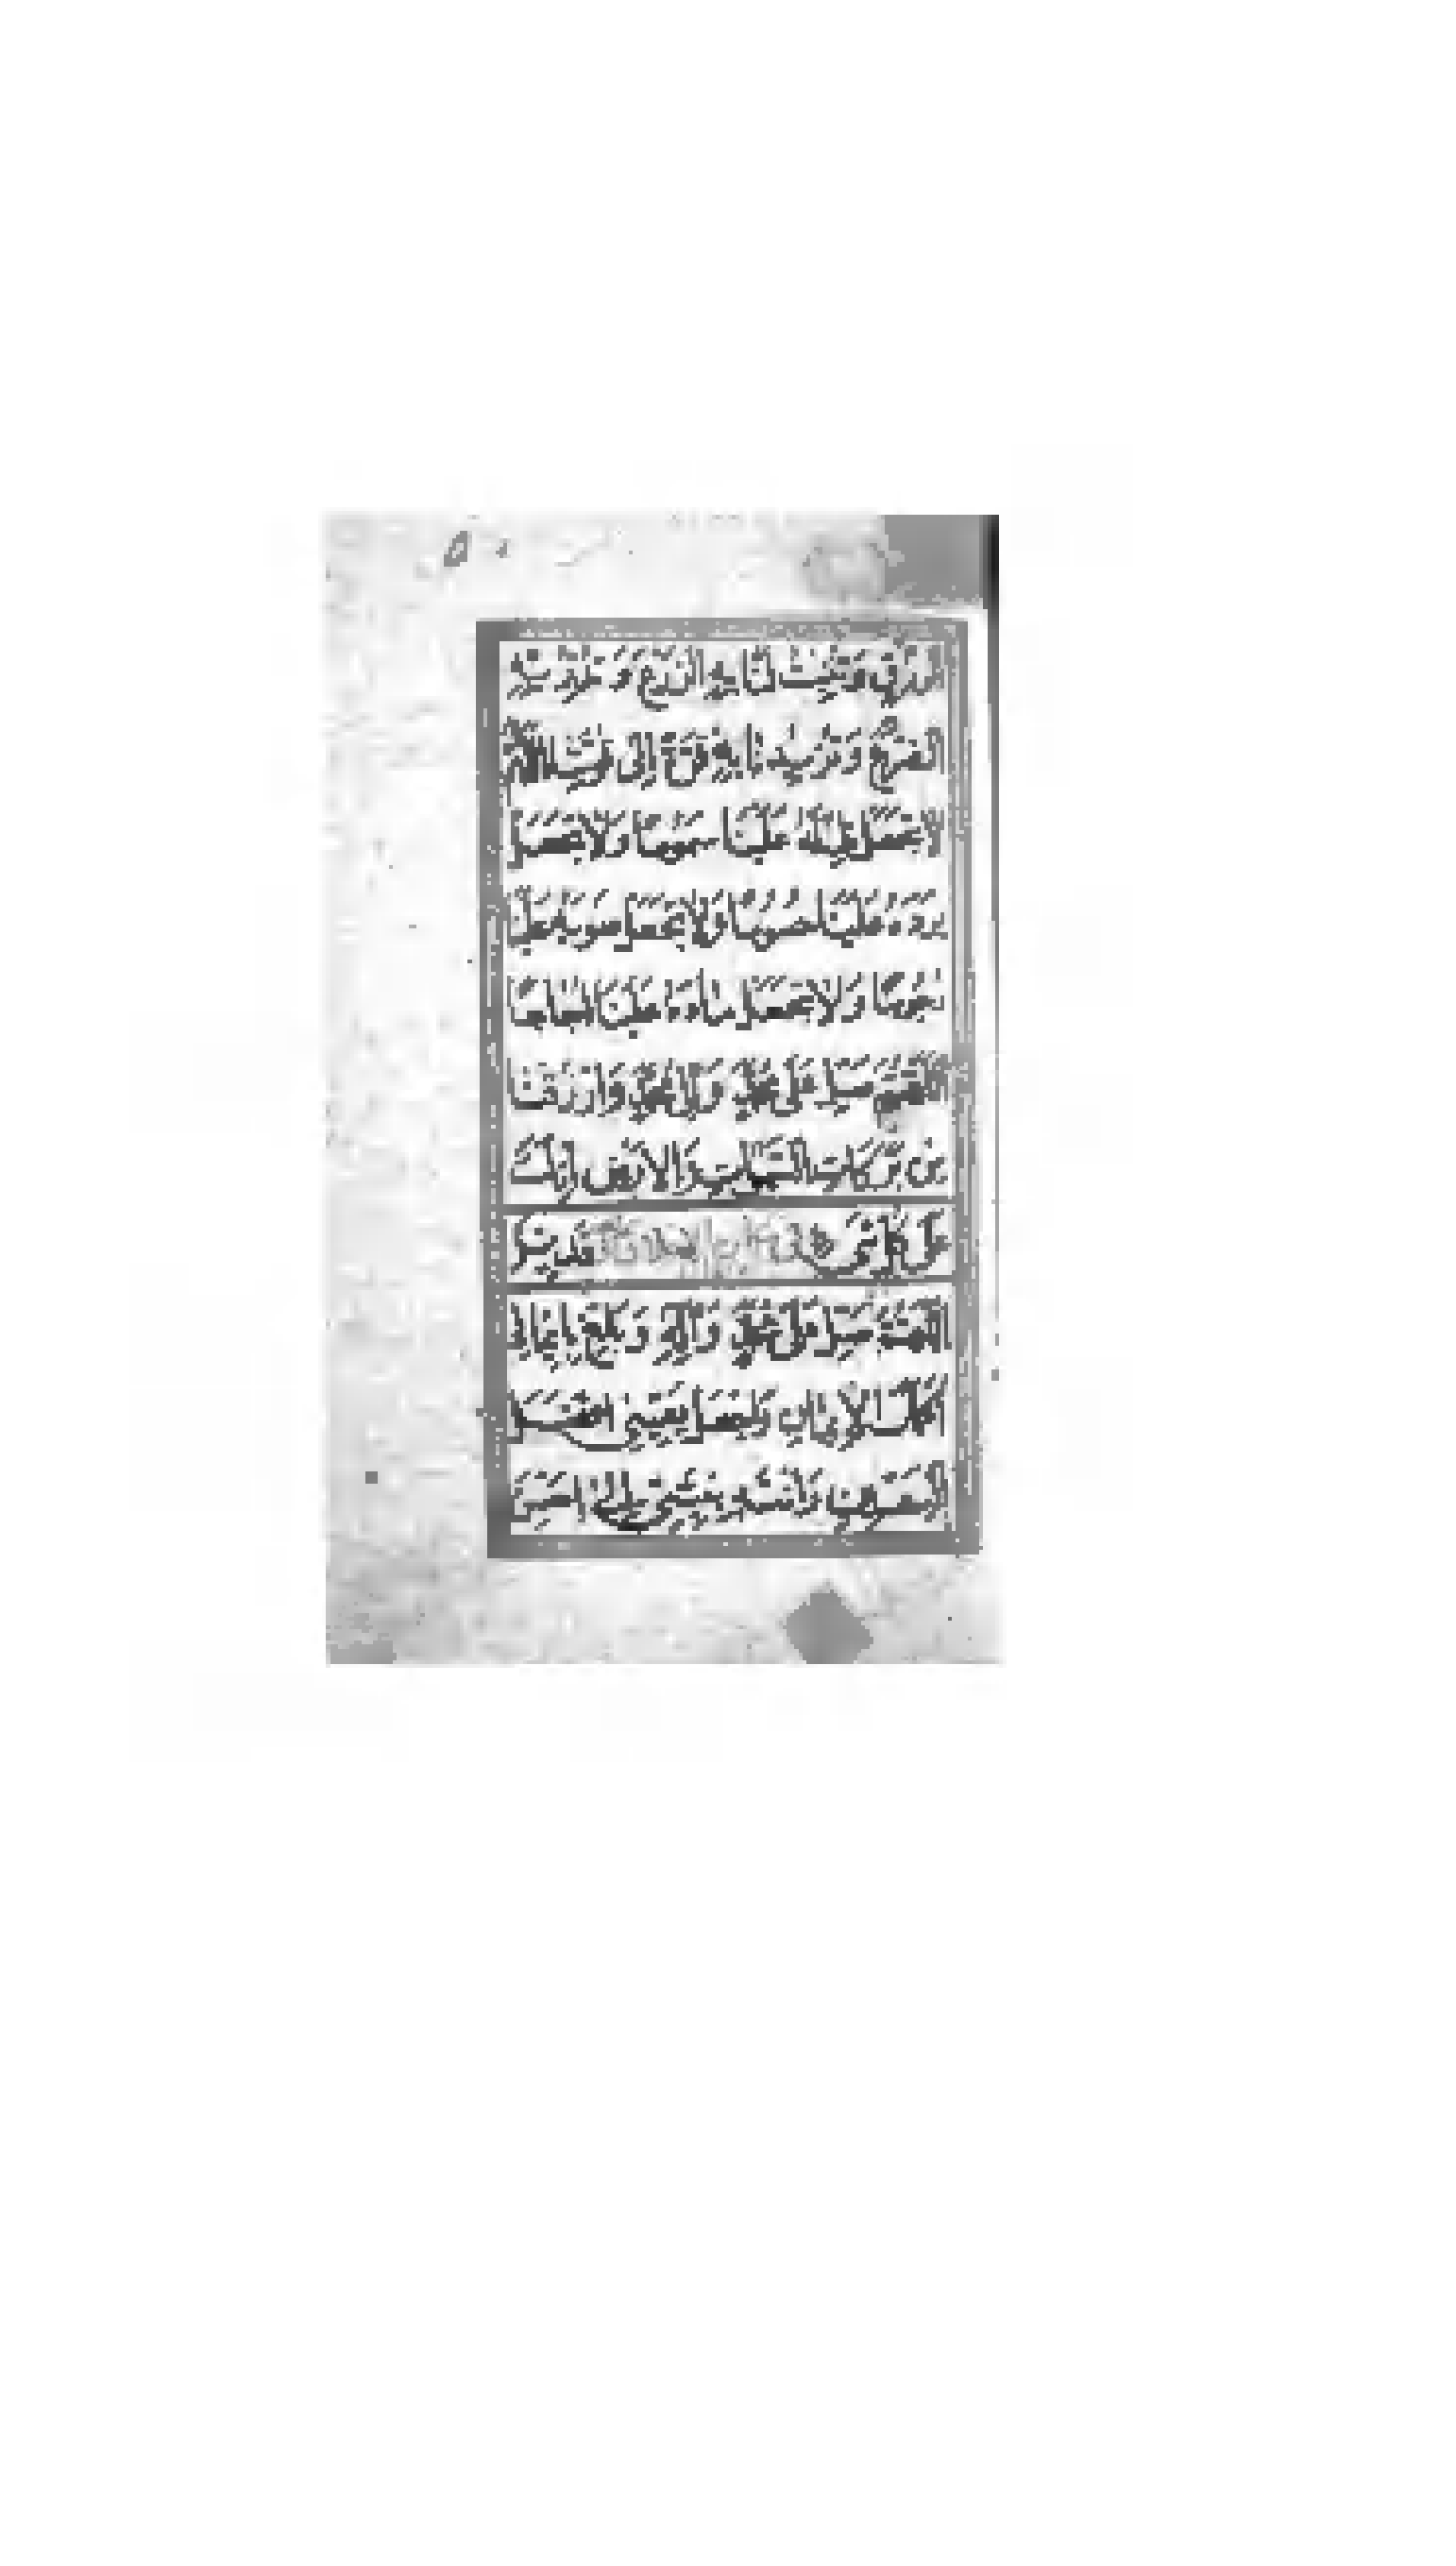 ۵۰
الرزق وتنبت لنا به الزرع وتدر به
الضرع وتزيدنا به قوة الى قوتنا اللهم
لا تجعل ظله علينا سموما ولا تجعل
برده علينا حسوما ولا تجعل صوبه علينا
رجوما ولا تجعل ماءه علينا اجاجا
اللهم صل على محمد وال محمد وارزقنا
من بركات السموات والارض انك
على كل شىء قدير
اللهم صل على محمد واله وبلغ بايمانى
اكمل الايمان واجعل يقينى افضل
اليقين وانته بنيتى الى احسن